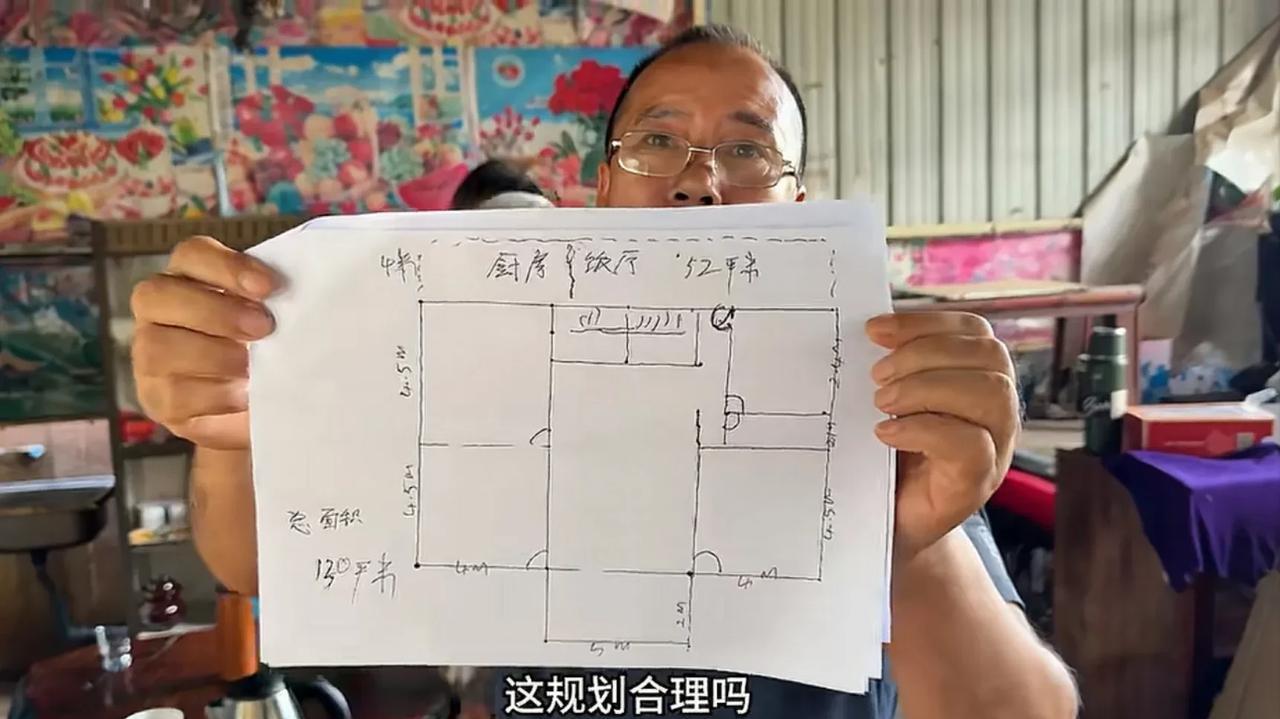 4米
厨房 饭厅 52平米
4.5m
4.5m
4.5m
总面积
130平米
4m
4m
2m
5m
这规划合理吗